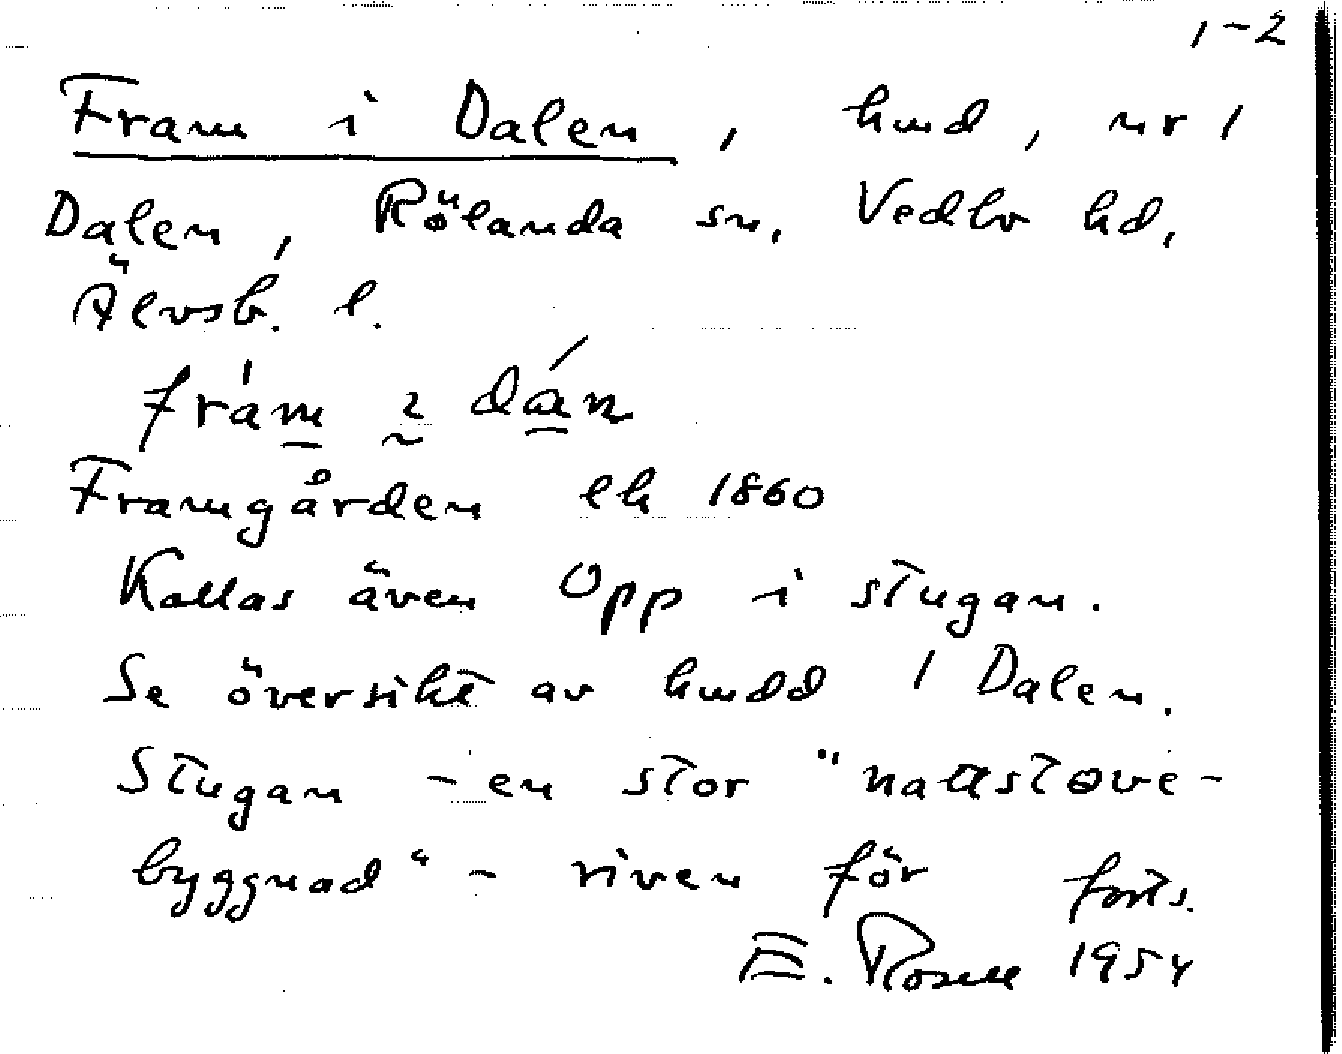 1-2
Fram i Dalen, hmd, nr 1
Dalen, Rölanda sn, Vedbo hd,
Älvsb. l.
Framgården ek 1860
Kallas även Opp i stugan.
Se översikt av hmdd 1 Dalen.
Stugan - en stor "nattstove-
byggnad" - riven för forts.
E. Rosell 1954